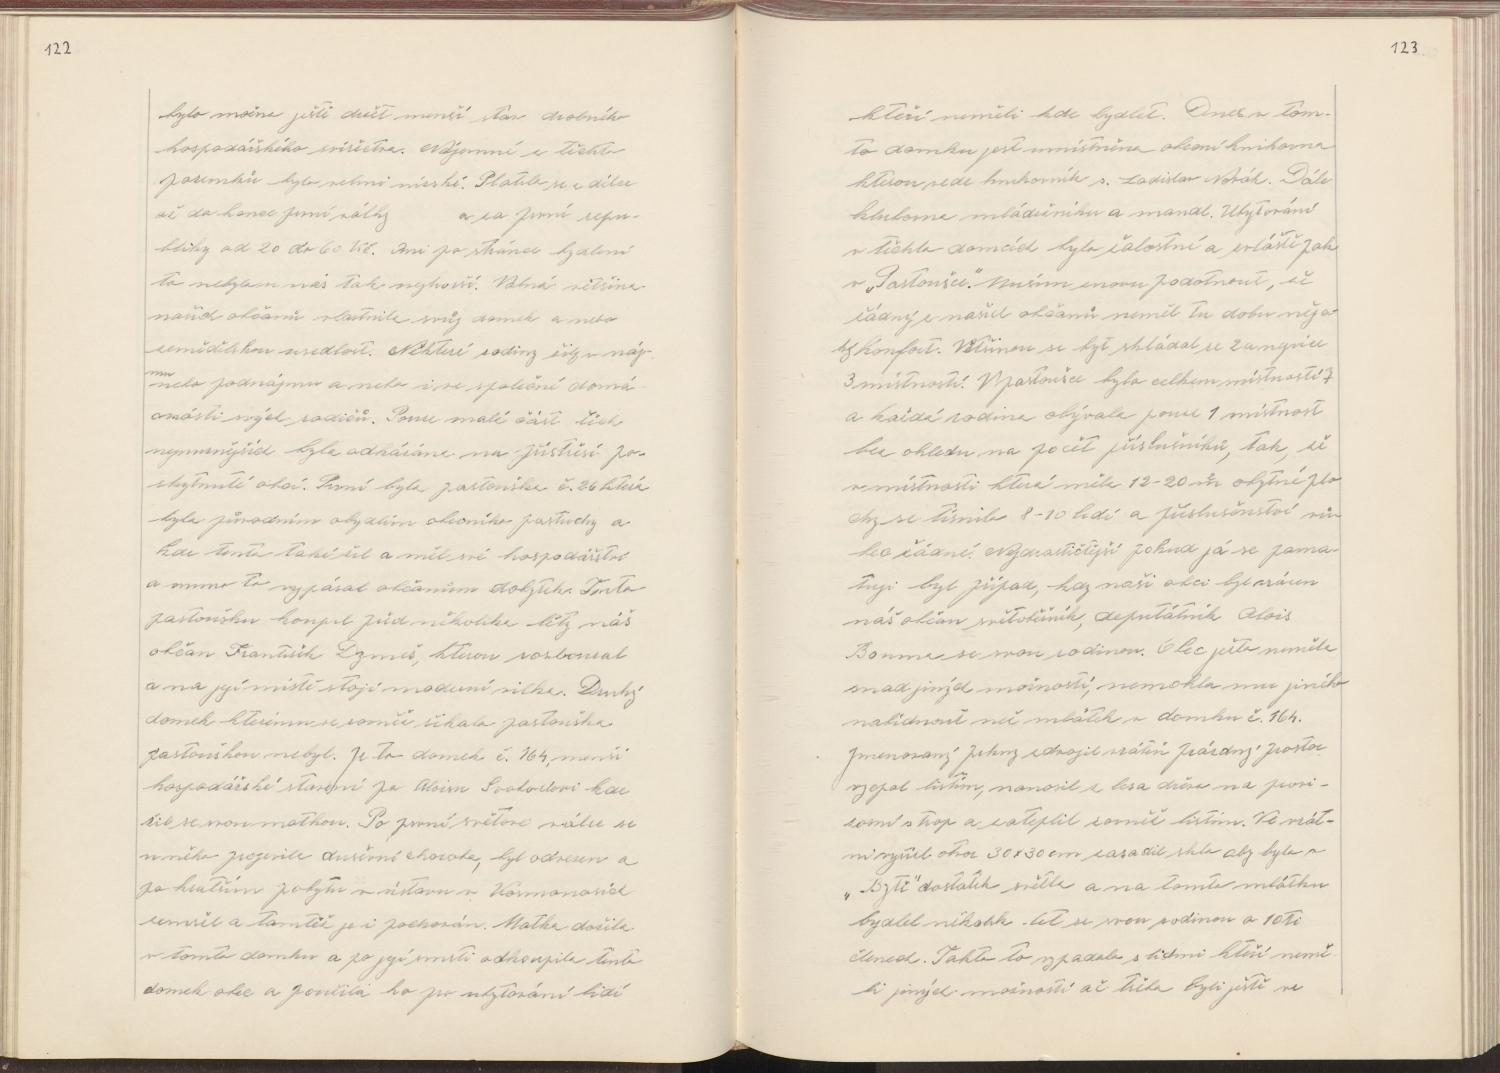 122
bylo možno ještě držet menší stav drobného
hospodářského zvířectva. Nájemné z těchto
pozemků bylo velmi nízské. Platilo se z dílce
až do konce první války a za první repu-
bliky od 20 do 60 Kč. Ani po stránce bydlení
to nebylo u nás tak nejhorší. Valná většina
našich občanů vlastnila svůj domek a nebo
zemědělskou usedlost. Některé rodiny žily v náj-
mu nebo podnájmu a nebo i ve společné domá-
cnosti svých rodičů. Pouze malá část těch
nejnuznějších byla odkázána na přístřeší po-
skytnuté obcí. První byla pastouška č. 26 která
byla původním obydlím obecního pastuchy a
kde tento také žil a měl své hospodářství
a mimo to vypásal občanům dobytek. Tuto
pastoušku koupil před několika léty náš
občan František Dzmeš, kterou rozboural
a na její místě stojí moderní vilka. Druhý
domek kterému se rovněž říkalo pastouška
pastouškou nebyl. Je to domek č. 164, menší
hospodářské stavení po Aloisu Svobodovi kde
žil se svou matkou. Po první světové válce se
u něho projevila duševní choroba, byl odvezen a
po kratším pobytu v ústavu v Kosmonosích
zemřel a tamtéž je i pochován. Matka dožila
v tomto domku a po její smrti odkoupila tento
domek obec a použila ho po ubytování lidí
123
kteří neměli kde bydlet. Dnes v tom-
to domku jest umístněna obecní knihovna
kterou vede knihovník s. Ladislav Novák. Dále
klubovna mládežníků a mandl. Ubytování
v těchto domcích bylo žalostné a zvláště pak
v „Pastoušce". Musím znovu podotknout, že
žádný z našich občanů neměl tu dobu něja-
ký konfort. Většinou se byt skládal ze 2 a nejvíce
3 místností. V pastoušce bylo celkem místností 7
a každá rodina obývala pouze 1 místnost
bez ohledu na počet příslušníků, tak, že
v místnosti která měla 12-20 m obytné plo
chy se tísnilo 8-10 lidí a příslušenství vů-
bec žádné. Nejdrastičtější pokud já se pama-
tuji byl případ, kdy naší obci byl vrácen
náš občan světoběžník, deputátník Alois
Bouma se svou rodinou. Obec ježto neměla
snad jiných možností, nemohla mu jiného
nabídnout než mlátek v domku č. 164.
Jmenovaný prkny zdrojil vrátru prázdný prostor
vycpal listím, nanosil z lesa dříva na provi-
zorní strop a zateplil rovněž listím. Ve vrát-
ni vyřízl otvor 30x30 cm zasadil sklo aby bylo v
„Bytě" dostatek světla a na tomto mlátku
bydlel několik let se svou rodinou o 10ti
členech. Takto to vypadalo s lidmi kteří nemě-
li jiných možností ač třeba byli ještě ve